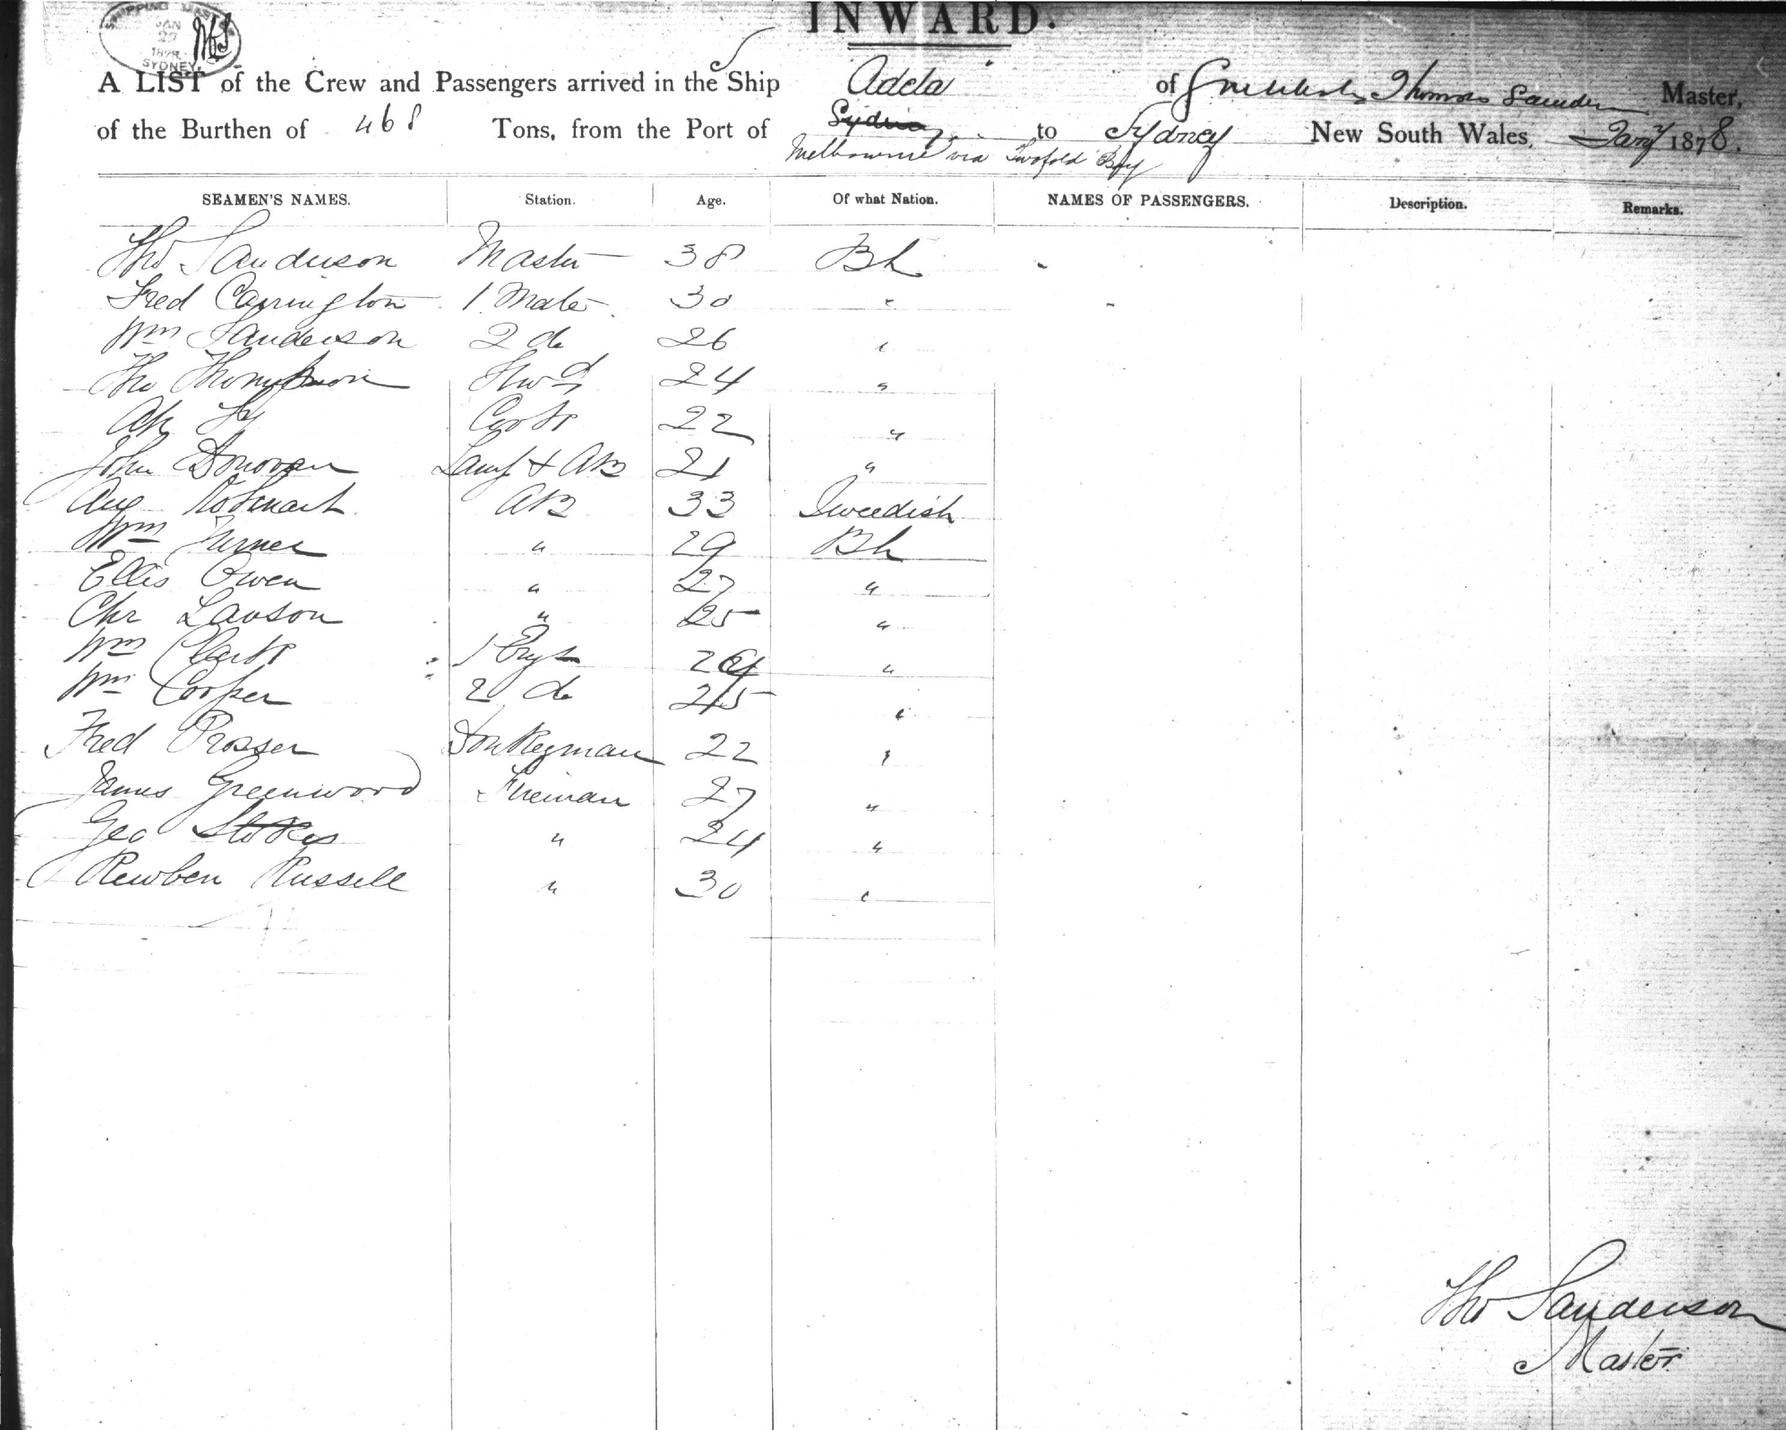 SHIPPING MASTER
JAN
22
1878
SYDNEY
INWARD.
A LIST of the Crew and Passengers arrived in the Ship Adela of Thomas Master,
of the Burthen of 468 Tons, from the Port of Sydney to Sydney New South Wales, Jany 1878.
Melbourne via Twofold Bay
SEAMEN'S NAMES. Station. Age. Of what Nation. NAMES OF PASSENGERS. Description. Remarks.
Tho Sanderson Master 38 Bh
Fred Carrington 1 Mate 30 "
Wm Sanderson 2 do 26 "
Tho Thompson Stwd 24 "
Ah Cook 22 "
John Donovan Lamp & AB 21 "
Aug AB 33 Swedish
Wm Turner " 29 Bh
Ellis Owen " 27 "
Chr Lawson " 25 "
Wm Clark 1 "
Wm Cooper 2 do 45 "
Fred Prosser Donkeyman 22 "
James Greenwood Fireman 27 "
Geo Stokes " 24 "
Rewben Russell " 30 "
Tho Sanderson
Master